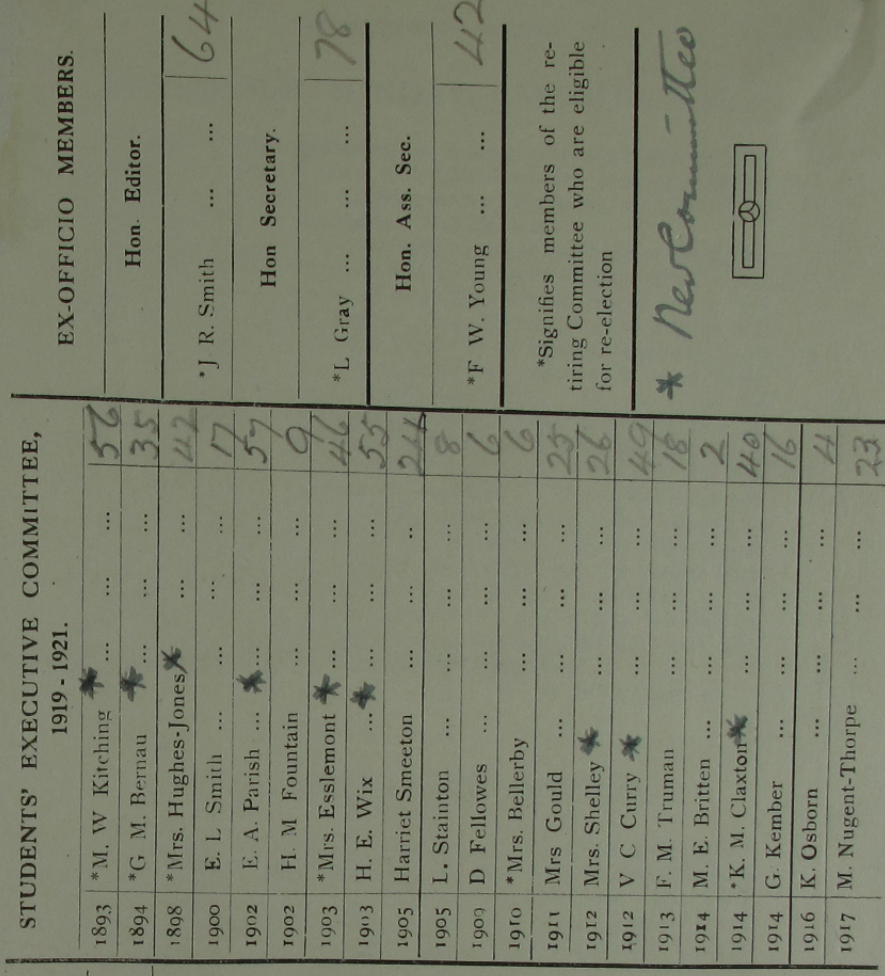 STUDENTS' EXECUTIVE COMMITTEE,
1919 - 1921.
1893 *M. W Kitching * ... ... ... 56
1894 *G M. Bernau * ... ... ... 35
1898 *Mrs. Hughes-Jones * ... ... 42
1900 E. L Smith ... ... ... ... 17
1902 E. A. Parish ... * ... ... ... 57
1902 H. M Fountain ... ... ... 9
1903 *Mrs. Esslemont * ... ... ... 46
1903 H. E. Wix ... * ... ... ... 55
1905 Harriet Smeeton ... ... .. 24
1905 L. Stainton ... ... ... ... 8
1909 D Fellowes ... ... ... ... 6
1910 *Mrs. Bellerby ... ... ... 6
1911 Mrs Gould ... ... ... ... 25
1912 Mrs. Shelley * ... ... ... 26
1912 V C Curry * ... ... ... 49
1913 F. M. Truman ... ... ... 18
1914 M. E. Britten ... ... ... ... 2
1914 *K. M. Claxton * ... ... ... 40
1914 G. Kember ... ... ... ... 16
1916 K. Osborn ... ... ... ... 4
1917 M. Nugent-Thorpe ... ... ... 23
EX-OFFICIO MEMBERS.
Hon. Editor.
*J R. Smith ... ... 64
Hon Secretary.
*L Gray ... ... ... 78
Hon. Ass. Sec.
*F W. Young ... ... 42
*Signifies members of the re-
tiring Committee who are eligible
for re-election
* New Committee